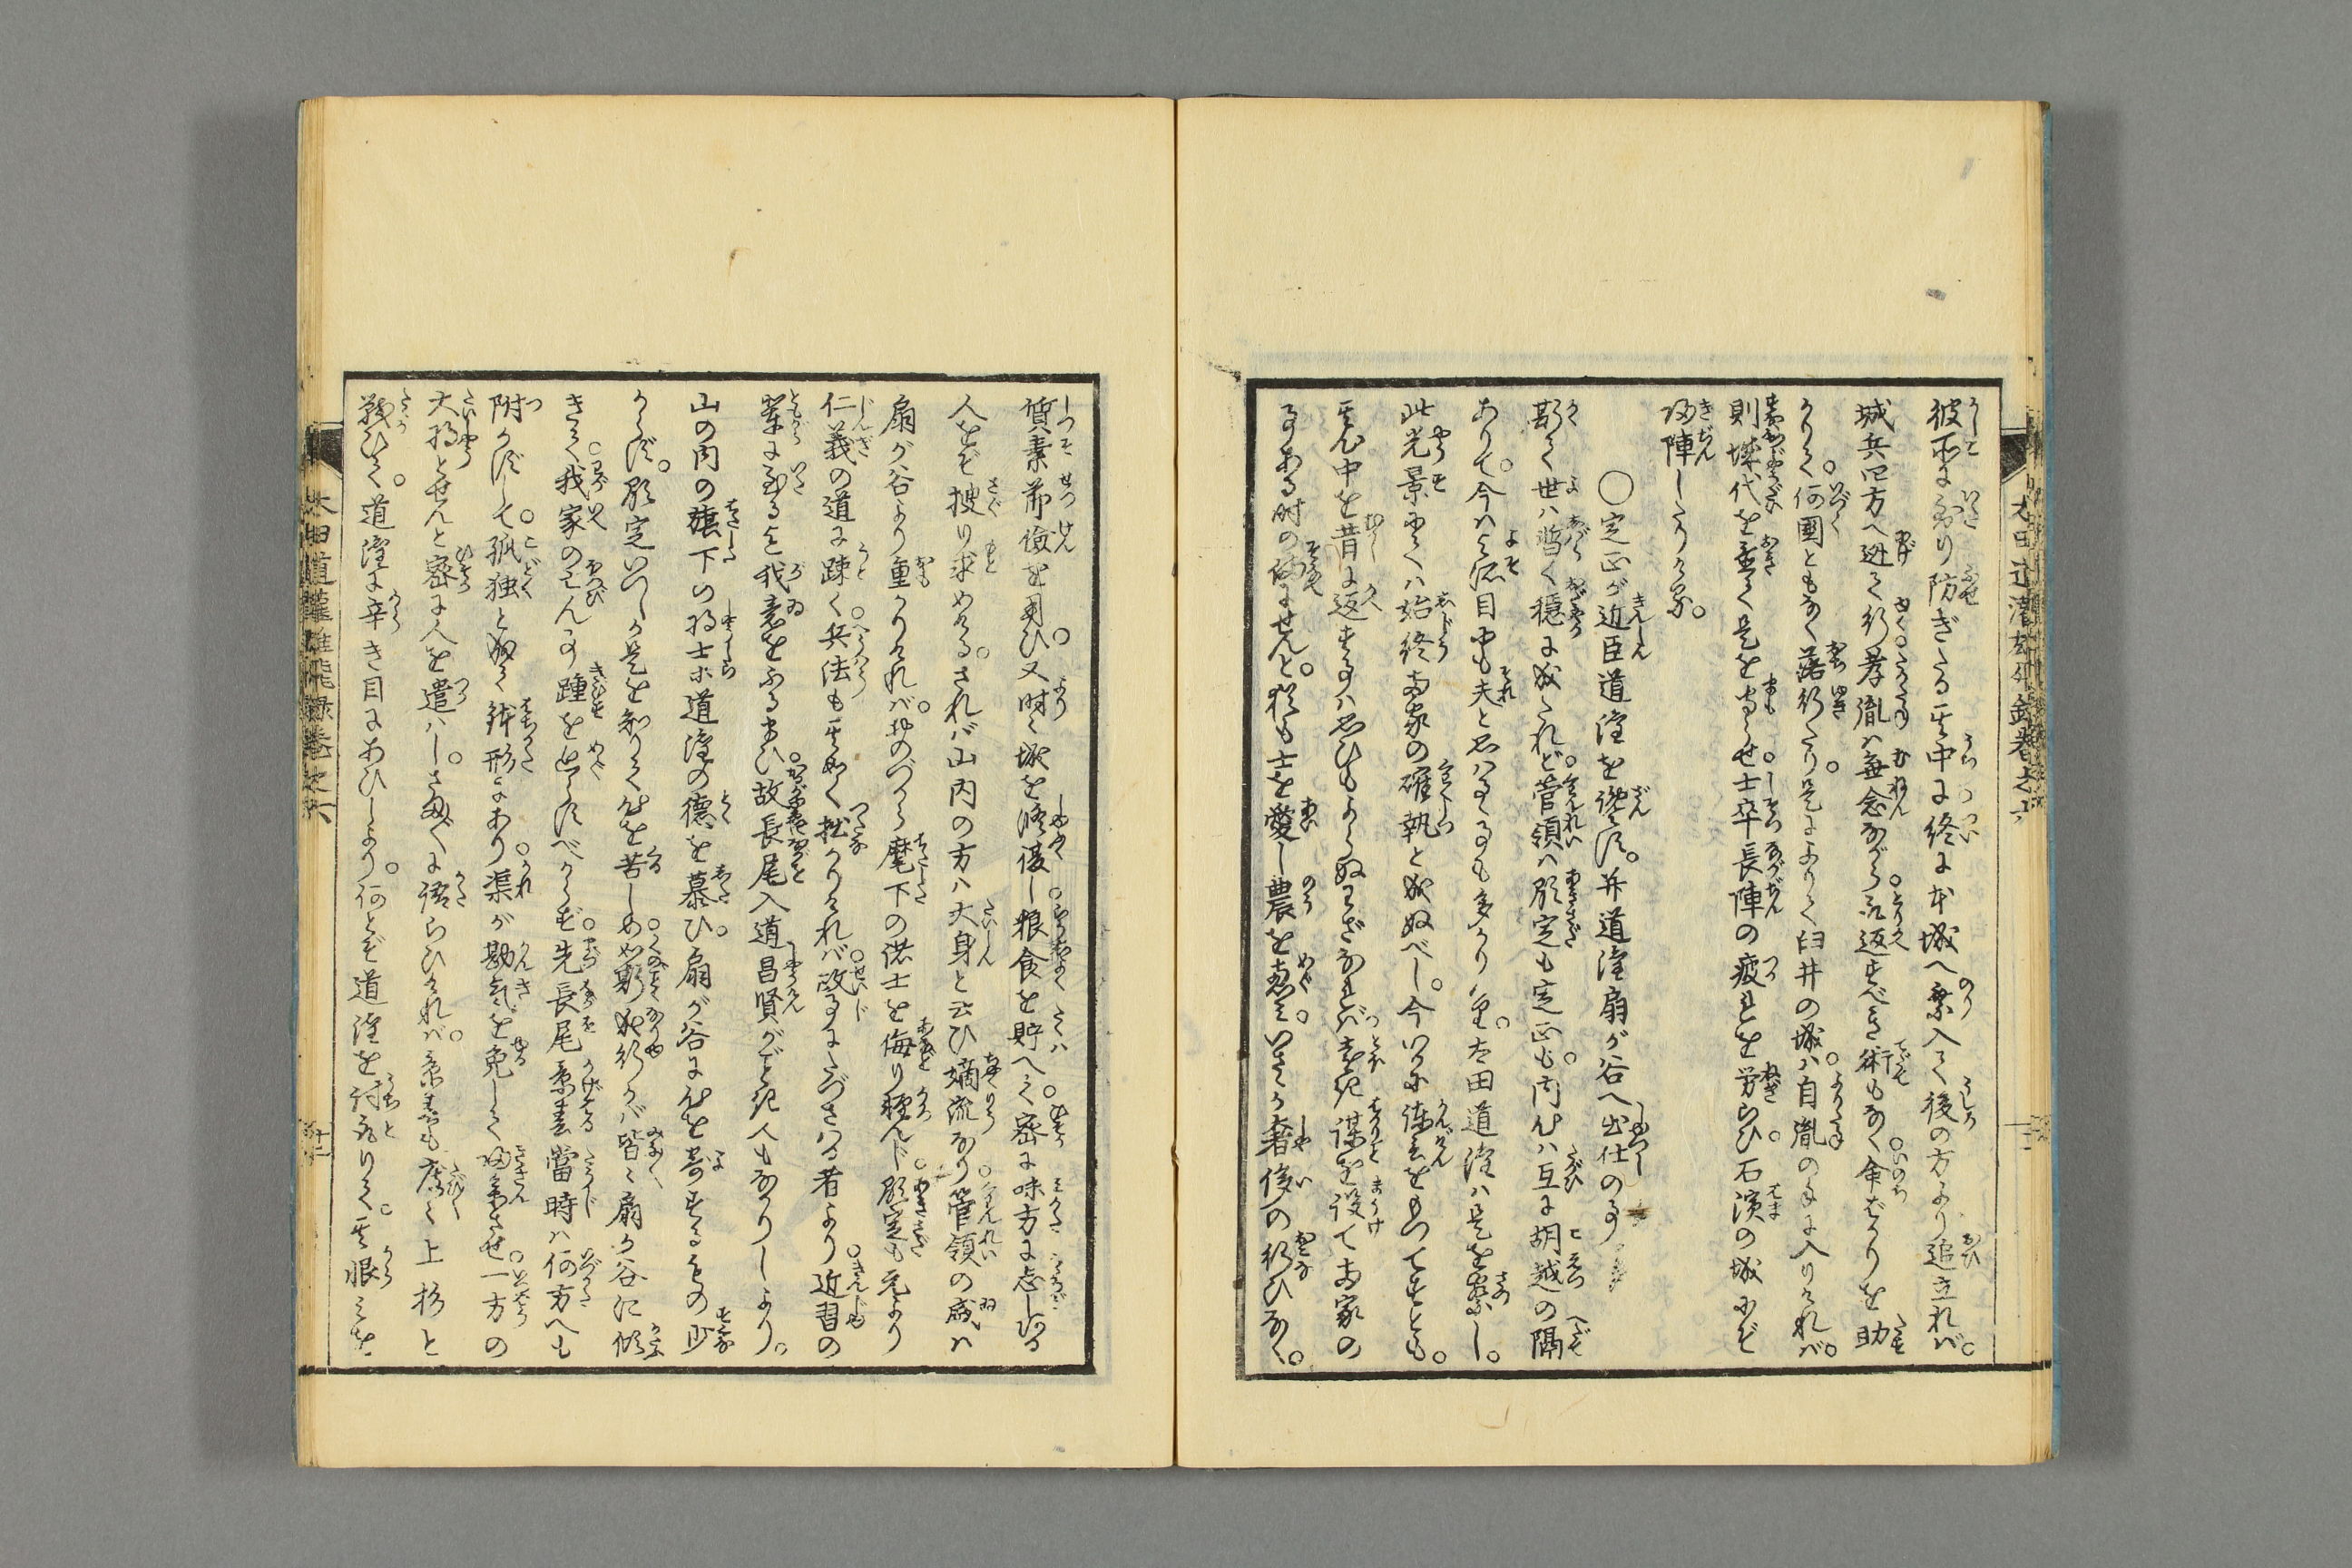 彼所に至り防ぎたる其中に終に本城へ乗入て後の方より追立れバ。
城兵四方へ逃て行。孝胤ハ無念ながら。取返すべき術もなく。命ばかりを助
かりて。何國ともなく落行たり。是によりて臼井の城ハ。自胤の手に入りけれバ。
則城代を置て是を守らせ。士卒長陣の疲れを労らひ。石濱の城にぞ
帰陣したりける。
○定正が近臣道灌を讒す。并道灌扇が谷へ出仕の事
斯て世ハ暫く穏に成たれど。菅領ハ顕定も定正も。内心ハ互に胡越の隔
ありて。今ハよそ目にも夫と思ハるゝ事も多かりける。太田道灌ハ是を察し。
此光景にてハ始終両家の確執と成ぬべし。今いかに諫言をもつてすとも。
其心中を昔に返す事ハ思ひもよらぬわざなれバ。速に謀を設て両家の
事ある時の備にせんと。猶も士を愛し農を恵み。いさゝか奢侈の行ひなく。
質素節儉を用ひ。又時々城を修復し。粮食を貯へて。密に味方に志しある
人をぞ捜り求めける。されバ山内の方ハ大身と云ひ嫡流なり。管領の威ハ
扇が谷より重かりけれバ。おのづから麾下の諸士を侮り軽んじ。顕定も元より
仁義の道に疎く。兵法も其如く拙かりけれバ。政事にたづさハる者より。近習の
輩に至るまで我意をふるまひ。故長尾入道昌賢がごとき人もなかりしより。
山の内の旗下の将士等道灌の徳を慕ひ。扇が谷に心を寄するもの少
からず。顕定いつしか是を知りて心を苦しめ。如斯成行かバ皆々扇が谷に傾
きて。我家のほろびん事踵を返らすべからず。先長尾景春當時ハ何方へも
附かずして。孤独と成て鉢形にあり。渠が勘気を免して帰参させ。一方の
大将とせんと密に人を遣ハし。さまゞゝに語らひけれバ。景春も度々上杉と
戦ひて。道灌に辛き目にあひしより。何とぞ道灌を討取りて。其恨みを
太田道灌雄飛録巻之六
太田道灌雄飛録巻之六
十二